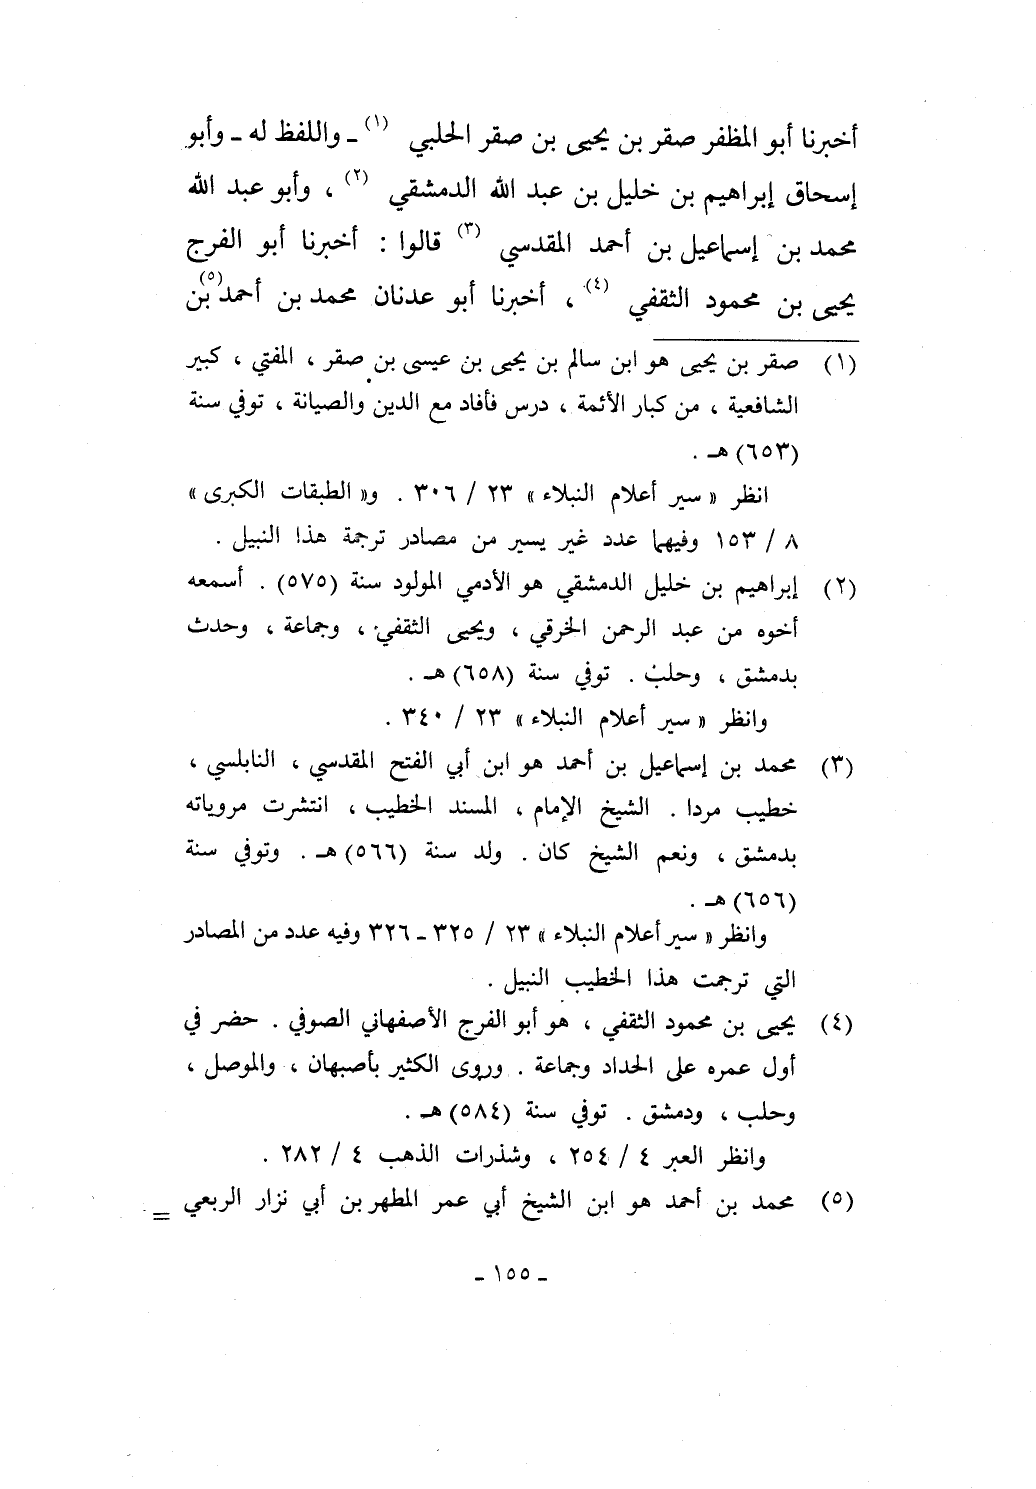 أخبرنا أبو المظفر صقر بن يحيى بن صقر الحلبي (١) ـ واللفظ له ـ وأبو
إسحاق إبراهيم بن خليل بن عبد الله الدمشقي (٢) ، وأبو عبد الله
محمد بن إسماعيل بن أحمد المقدسي (٣) قالوا : أخبرنا أبو الفرج
يحيى بن محمود الثقفي (٤) ، أخبرنا أبو عدنان محمد بن أحمد (٥) بن
(١) صقر بن يحيى هو ابن سالم بن يحيى بن عيسى بن صقر ، المفتي ، كبير
الشافعية ، من كبار الأئمة ، درس فأفاد مع الدين والصيانة ، توفي سنة
(٦٥٣) هـ .
انظر « سير أعلام النبلاء » ٢٣ / ٣٠٦ . و« الطبقات الكبرى »
٨ / ١٥٣ وفيهما عدد غير يسير من مصادر ترجمة هذا النبيل .
(٢) إبراهيم بن خليل الدمشقي هو الأدمي المولود سنة (٥٧٥) . أسمعه
أخوه من عبد الرحمن الخرقي ، ويحيى الثقفي ، وجماعة ، وحدث
بدمشق ، وحلب . توفي سنة (٦٥٨) هـ .
وانظر « سير أعلام النبلاء » ٢٣ / ٣٤٠ .
(٣) محمد بن إسماعيل بن أحمد هو ابن أبي الفتح المقدسي ، النابلسي ،
خطيب مردا . الشيخ الإمام ، المسند الخطيب ، انتشرت مروياته
بدمشق ، ونعم الشيخ كان . ولد سنة (٥٦٦) هـ . وتوفي سنة
(٦٥٦) هـ .
وانظر « سير أعلام النبلاء » ٢٣ / ٣٢٥ ـ ٣٢٦ وفيه عدد من المصادر
التي ترجمت هذا الخطيب النبيل .
(٤) يحيى بن محمود الثقفي ، هو أبو الفرج الأصفهاني الصوفي . حضر في
أول عمره على الحداد وجماعة . وروى الكثير بأصبهان ، والموصل ،
وحلب ، ودمشق . توفي سنة (٥٨٤) هـ .
وانظر العبر ٤ / ٢٥٤ ، وشذرات الذهب ٤ / ٢٨٢ .
(٥) محمد بن أحمد هو ابن الشيخ أبي عمر المطهر بن أبي نزار الربعي =
ـ ١٥٥ ـ